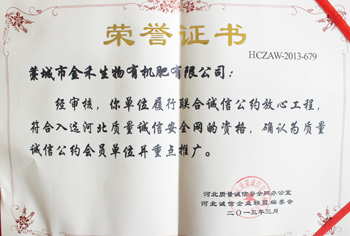 荣誉证书
HCZAW-2013-679
藁城市金禾生物有机肥有限公司：
经审核，你单位履行联合诚信公约放心工程，
符合入选河北质量诚信安全网的资格，确认为质量
诚信公约会员单位并重点推广。
河北质量诚信安全网办公室
河北诚信企业联盟编委会
二〇一三年三月